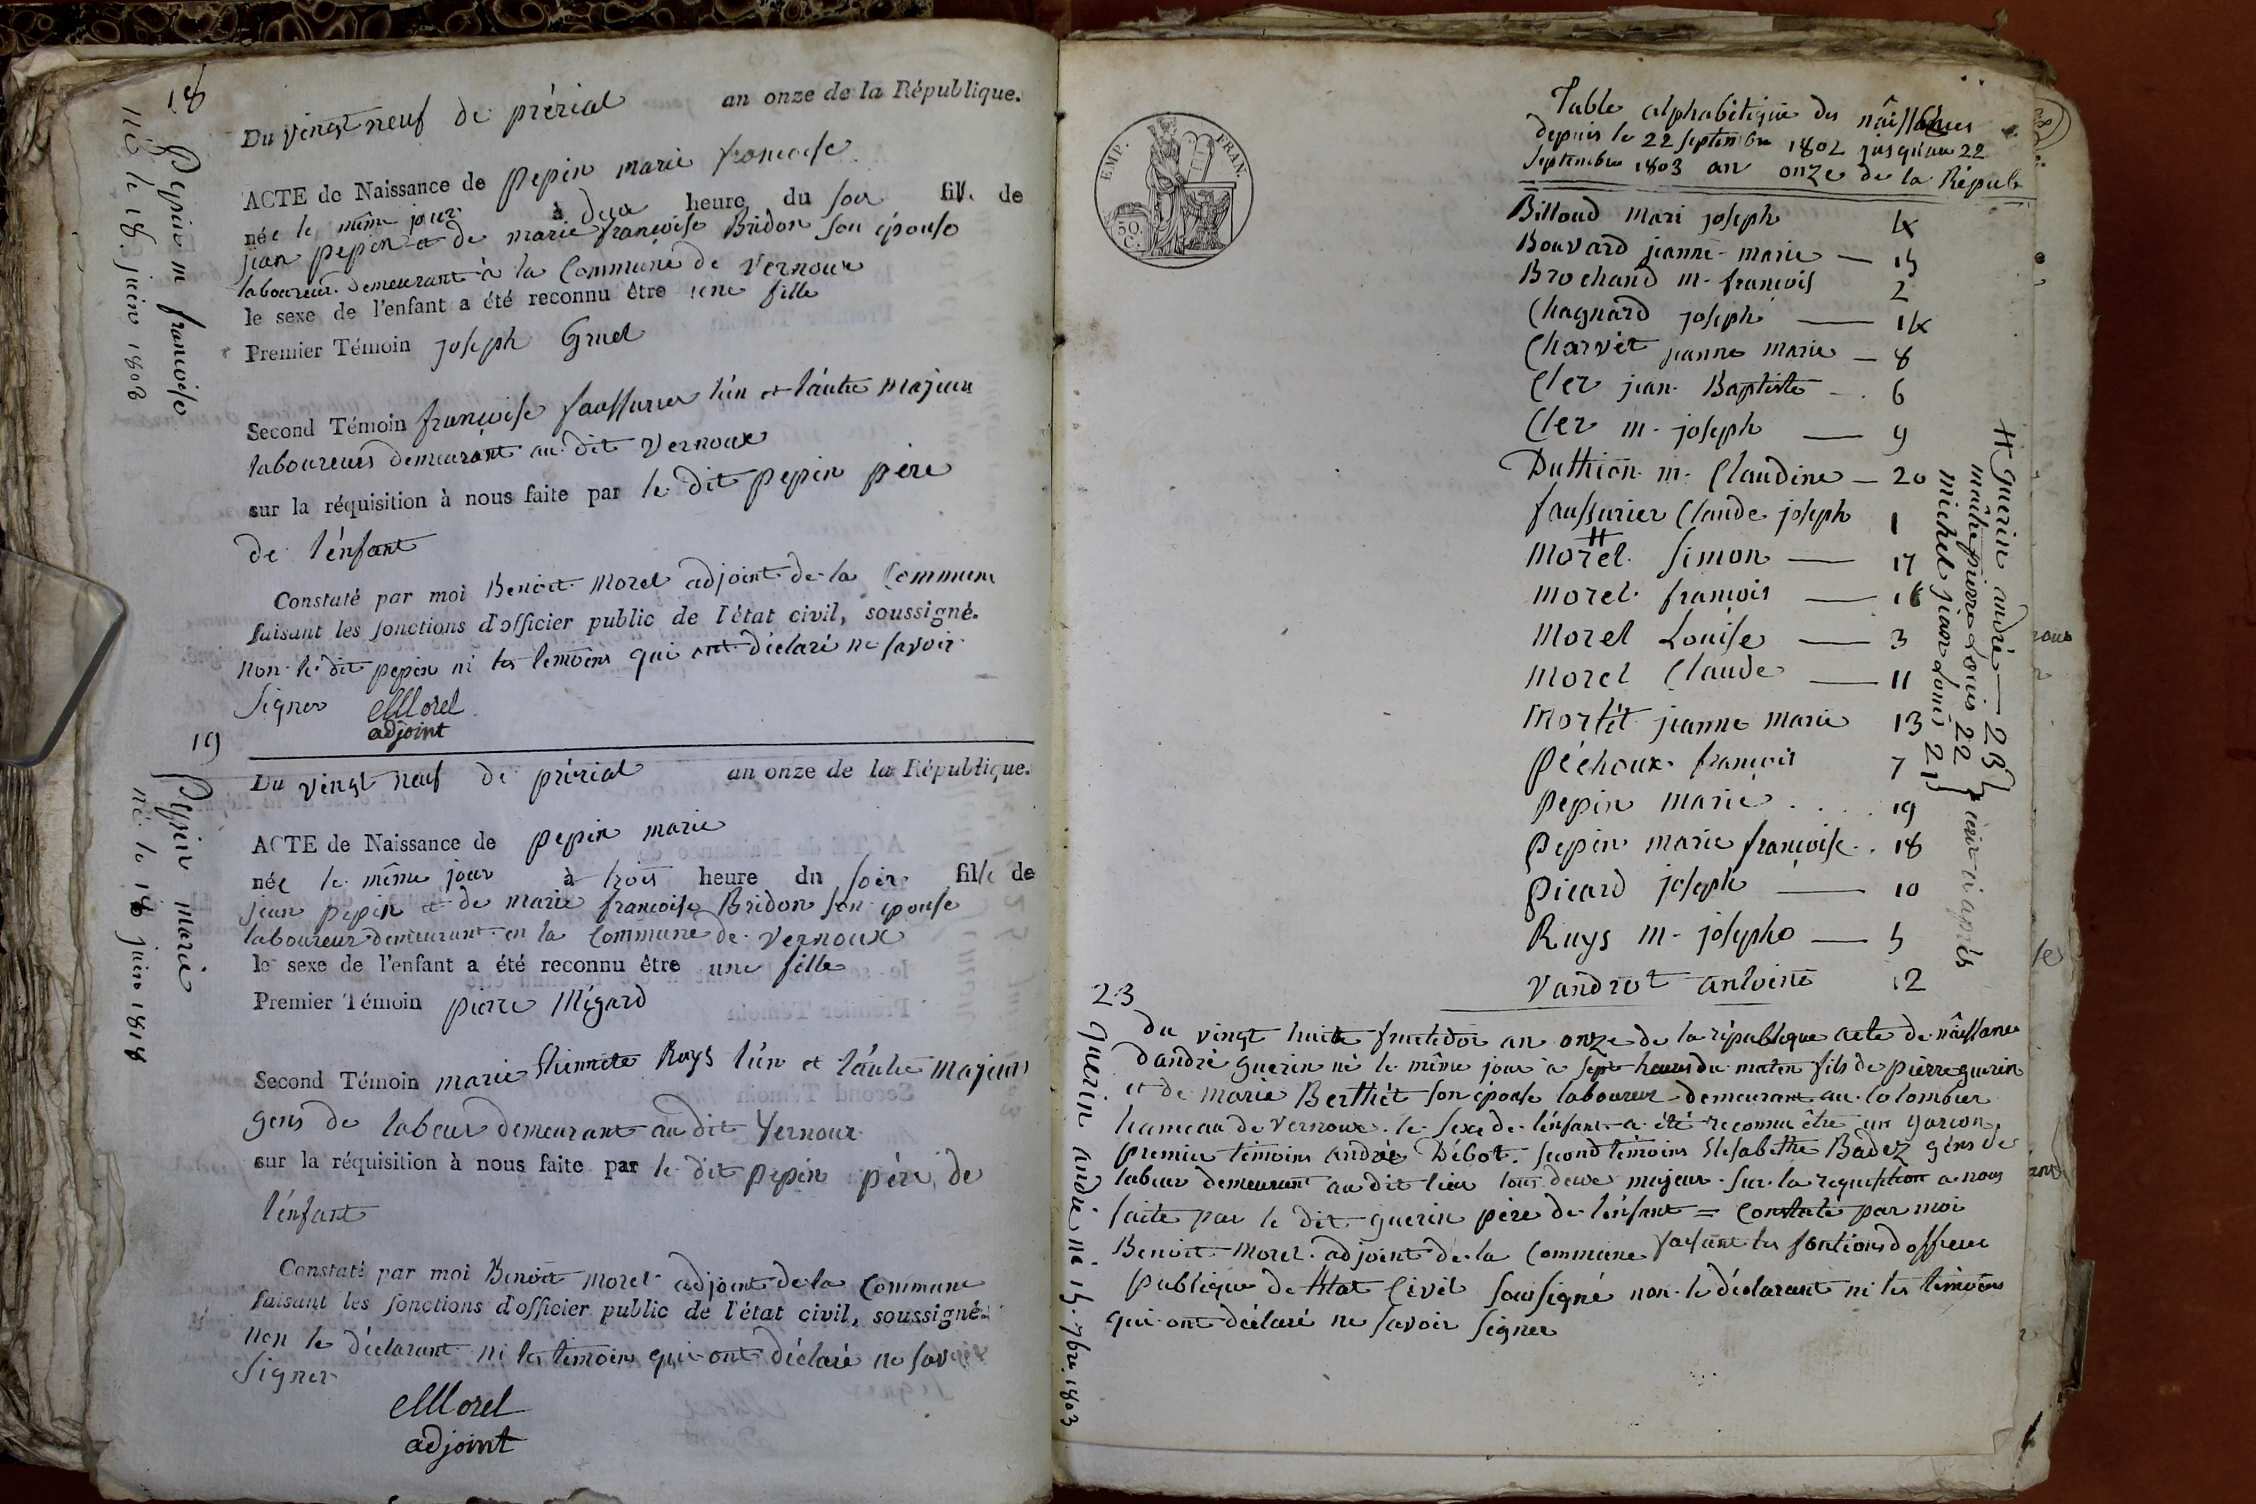 18
Pepin m francoise
née le 18 juin 1803
Du vingt neuf de prérial an onze de la République.
ACTE de Naissance de pepin marie francoise
née le même jour à deux heure du soir fille de
jean pepin et de marie françoise Bridon son épouse
laboureur demeurant à la Commune de Vernoux
le sexe de l'enfant a été reconnu être une fille
Premier Témoin joseph Gruel
Second Témoin françoise faussurier l'un et l'autre majeurs
laboureurs demeurant au dit Vernoux
sur la réquisition à nous faite par le dit pepin père
de l'énfant
Constaté par moi Benoit Morel adjoint de la Commune
faisant les fonctions d'officier public de l'état civil, soussigné.
non le dit pepin ni les temoins qui ont déclaré ne savoir
signer Morel
adjoint
19
Pepin marie
né le 18 juin 1818
Du vingt neuf de prérial an onze de la République.
ACTE de Naissance de pepin marie
née le même jour à trois heure du soir fille de
jean pepin et de marie francoise Bridon son épouse
laboureur demeurant en la Commune de Vernoux
le sexe de l'enfant a été reconnu être une fille
Premier Témoin pierre Mégard
Second Témoin marie Ruys l'un et l'autre majeurs
gens de labeur demeurant au dit Vernoux
sur la réquisition à nous faite par le dit pepin père de
l'énfant
Constaté par moi Benoit Morel adjoint de la Commune
faisant les fonctions d'officier public de l'état civil, soussigné.
non le déclarant ni les temoins qui ont déclaré ne savoir
signer
Morel
adjoint
EMP. FRAN.
50
C.
Table alphabétique des naîssances
depuis le 22 septembre 1802 jusquau 22
septembre 1803 an onze de la Répub
Billoud mari joseph 4
Bouvard jeanne marie — 15
Brochand m. francois 2
Chagnard joseph — 14
Charvet jeanne marie — 8
Cler jean Baptiste — 6
Cler m. joseph — 9
Duthion m. Claudine — 20
faussurier Claude joseph 1
#
Morel Simon — 17
Morel francois — 16
Morel Louise — 3
Morel Claude — 11
Mortét jeanne marie 13
péchoux françois 7
pepin marie . . . 19
pepin marie françoise . 18
picard joseph — 10
Ruys m. josephe — 5
Vandrot antoine 12
# guerin andré — 23
maître pierre Louis 22
michel jean Louis 21 } voir ci après
23
guerin andré né 15. 7bre. 1803
du vingt huit fructidor an onze de la république acte de naîssance
dandré guerin né le même jour à sept heures du maten fils de pierre guerin
et de marie Berthét son épouse laboureur demeurant au colombier
hameau de Vernoux. le sexe de l'énfant a été reconnu être un garçon,
premier témoins andré Débot. second témoins Elisabethe Badez géns de
labeur demeurant au dit lieu tous deux majeur. sur la requisition a nous
faite par le dit guerin père de l'énfant = Constaté par moi
Benoit Morel adjoint de la Commune faisant les fontions d'officier
publique de létat Civil soussigné non le déclarant ni les témoins
qui ont déclaré ne savoir signer